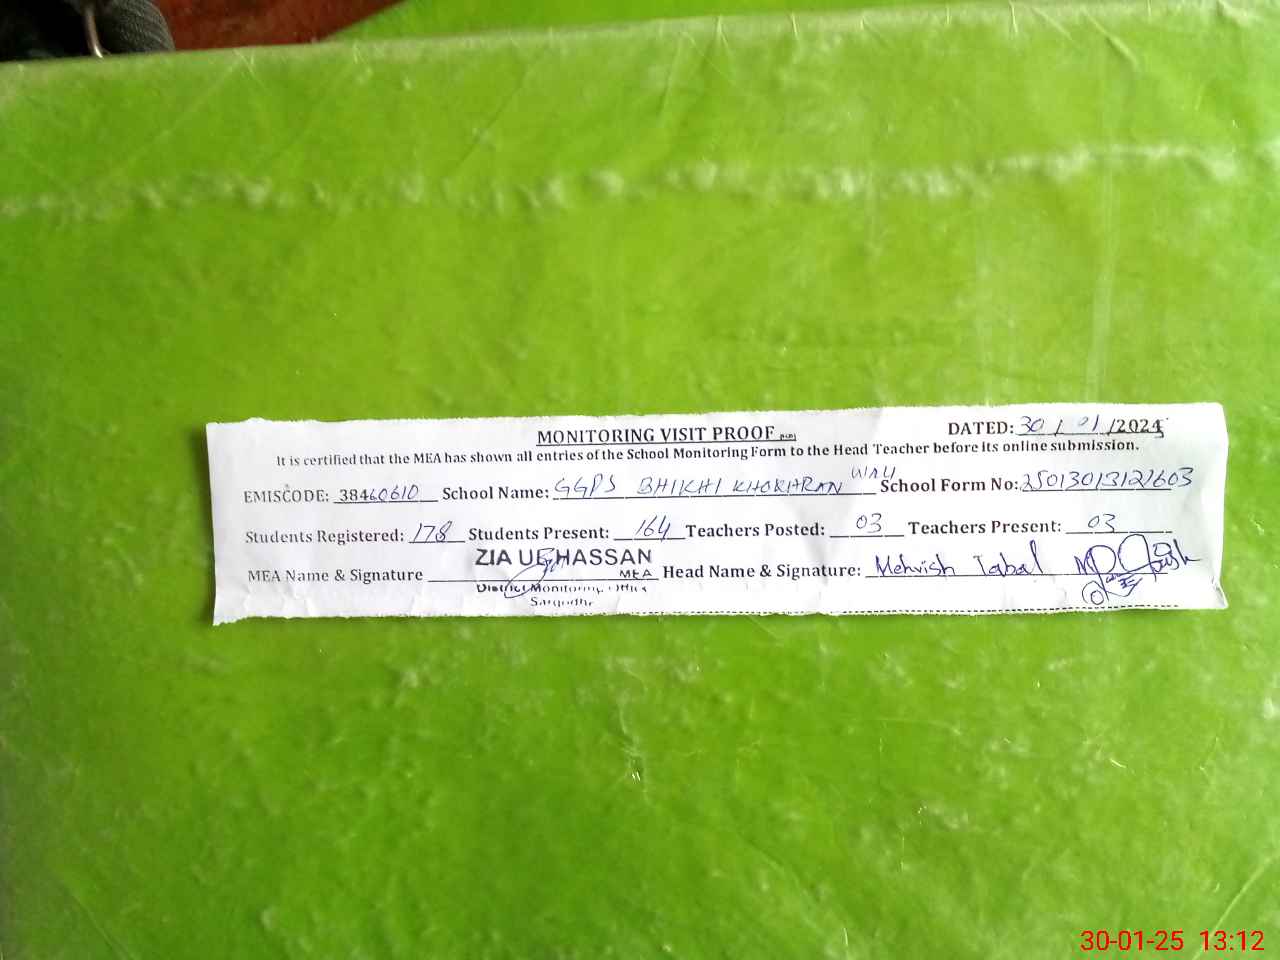 MONITORING VISIT PROOF
DATED: 30/01/2024
It is certified that the MEA has shown all entries of the School Monitoring Form to the Head Teacher before its online submission.
EMISCODE: 38460610 School Name: GGPS BHIKHI KHOKHRAN WALI School Form No: 25013013121603
Students Registered: 178 Students Present: 164 Teachers Posted: 03 Teachers Present: 03
MEA Name & Signature ZIA UL HASSAN Head Name & Signature: Mehvish Iqbal
MEA
District Monitoring Office
Sargodha
30-01-25 13:12